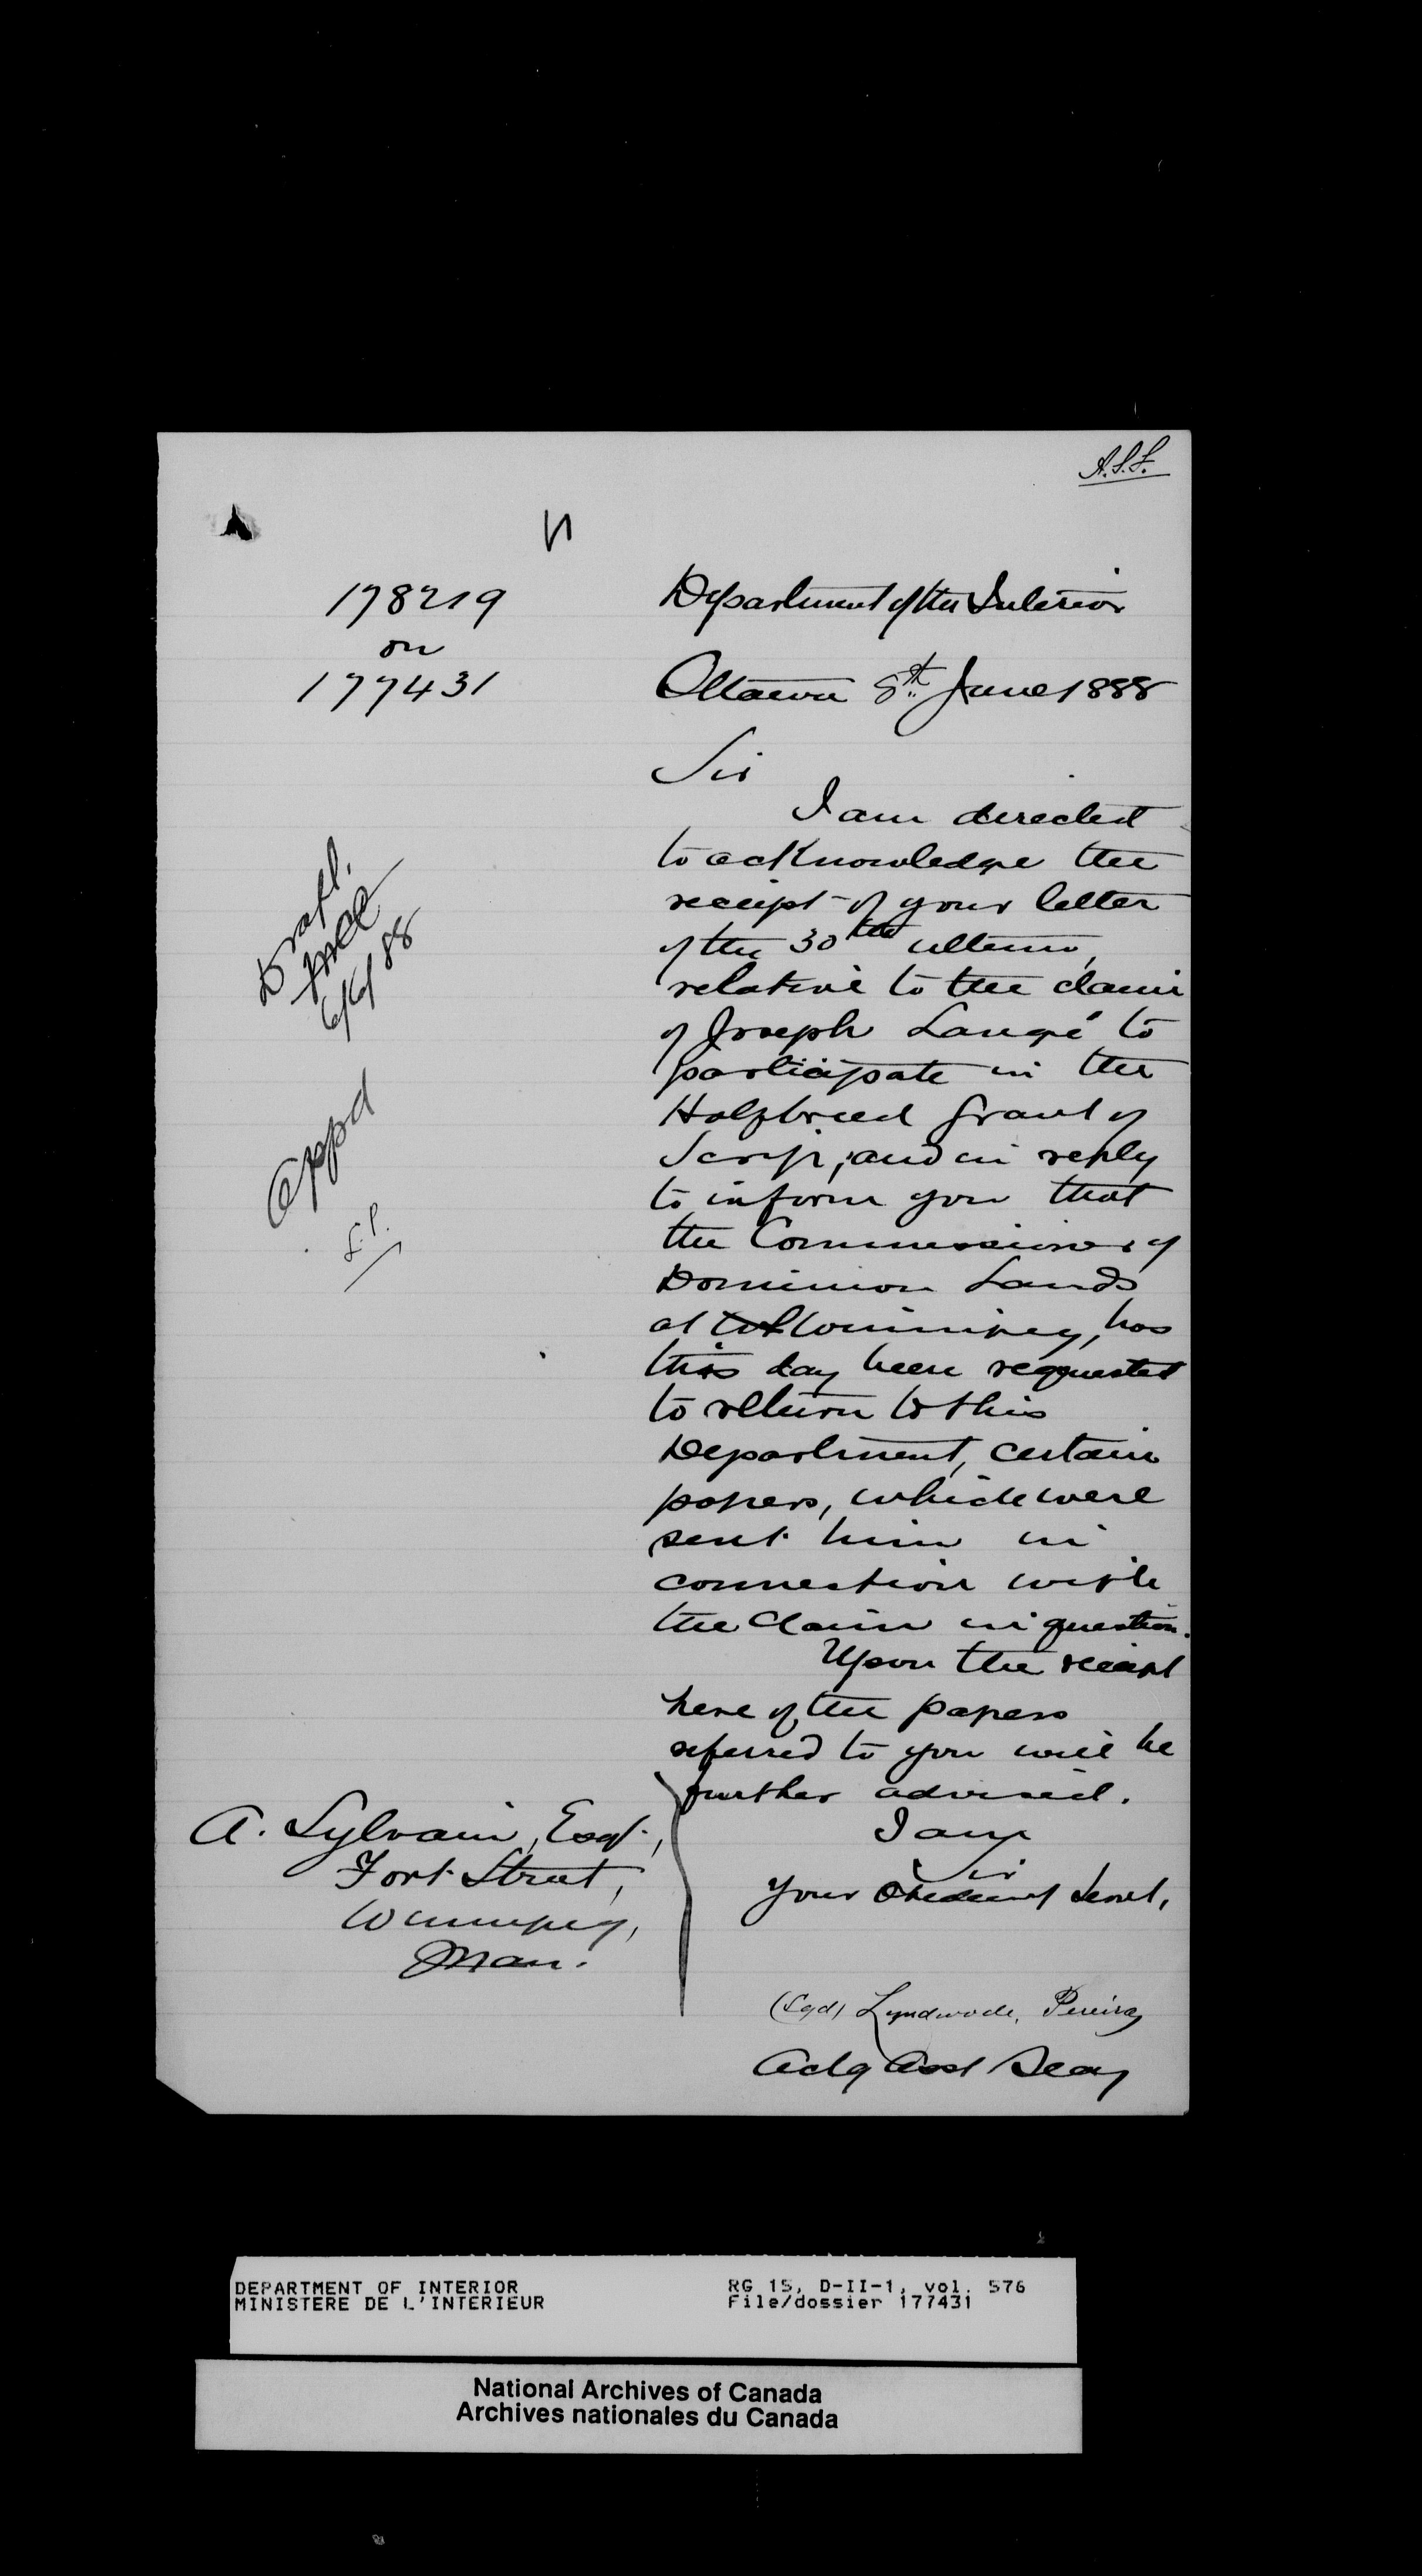 A.S.S.
178219
on
177431
Department of the Interior
Ottawa 8th June 1888
Sir
I am directed
to acknowledge the
receipt of your letter
of the 30th ultimo,
relative to the claim
of Joseph Langé to
participate in the
Halfbreed Grant of
Scrip, and in reply
to inform you that
the Commissioner of
Dominion Lands
at Winnipeg, has
this day been requested
to return to this
Department, certain
papers, which were
sent him in
connection with
the claim in question.
Upon the receipt
here of the papers
referred to you will be
further advised.
I am
Sir
Your Obedient Servt,
(Sgd) Lyndwode Pereira
Actg Asst Secy
Draft.
6/6/88
Appd
L.P.
A. Sylvain, Esqr.,
Fort Street,
Winnipeg,
Man.
DEPARTMENT OF INTERIOR
MINISTERE DE L'INTERIEUR
RG 15, D-II-1, vol. 576
File/dossier 177431
National Archives of Canada
Archives nationales du Canada